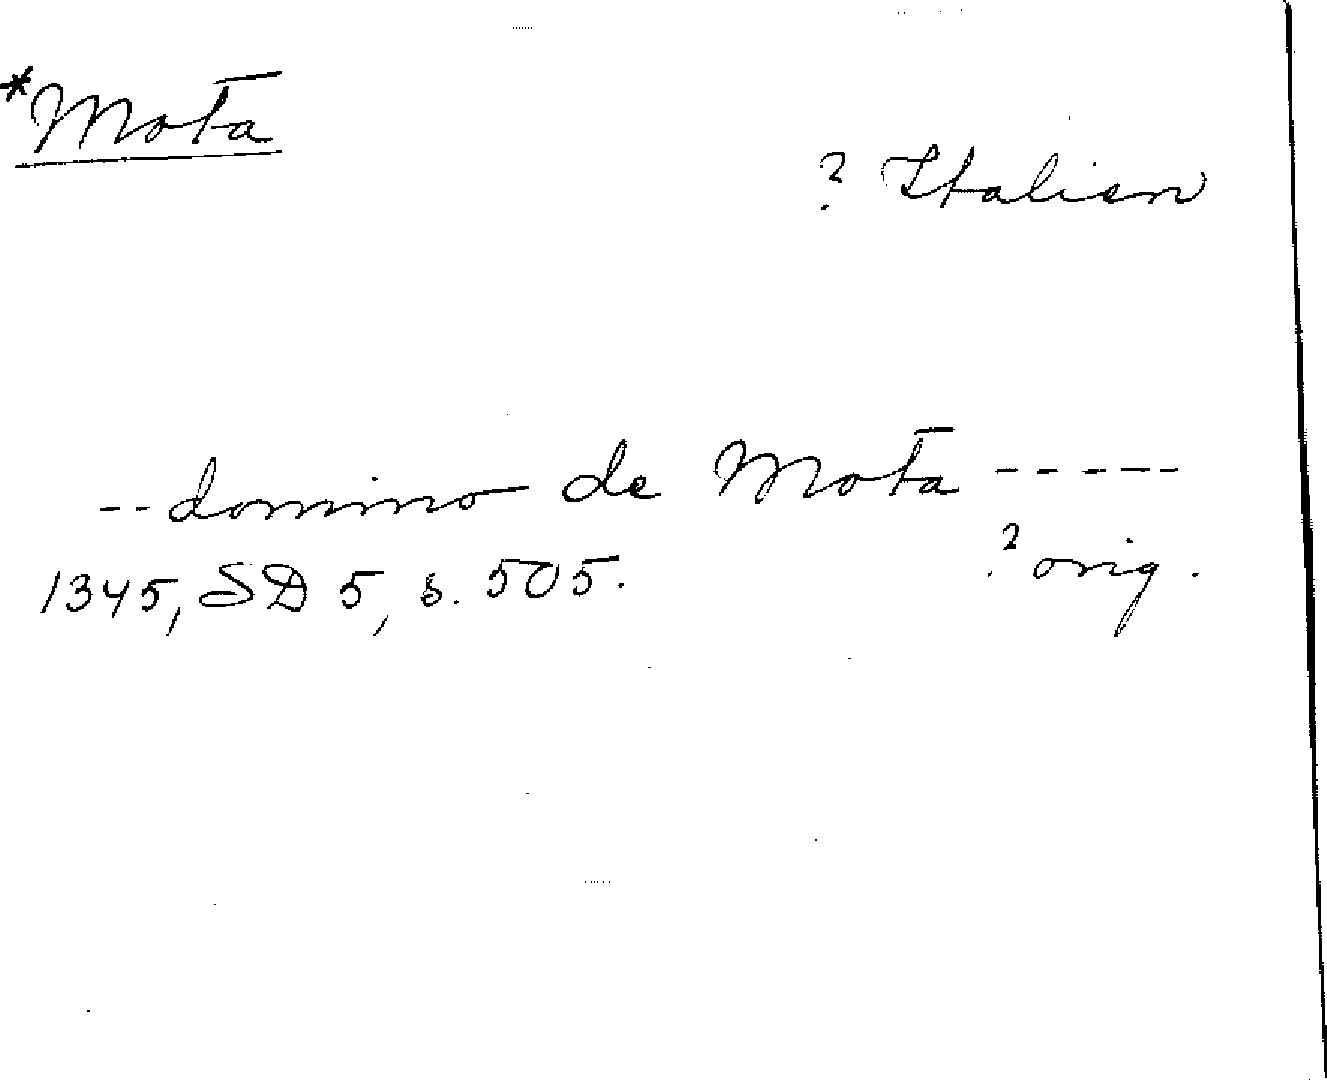 *Mota
? Italien
-- domino de Mota -----
1345, SD 5, s. 505.
? orig.